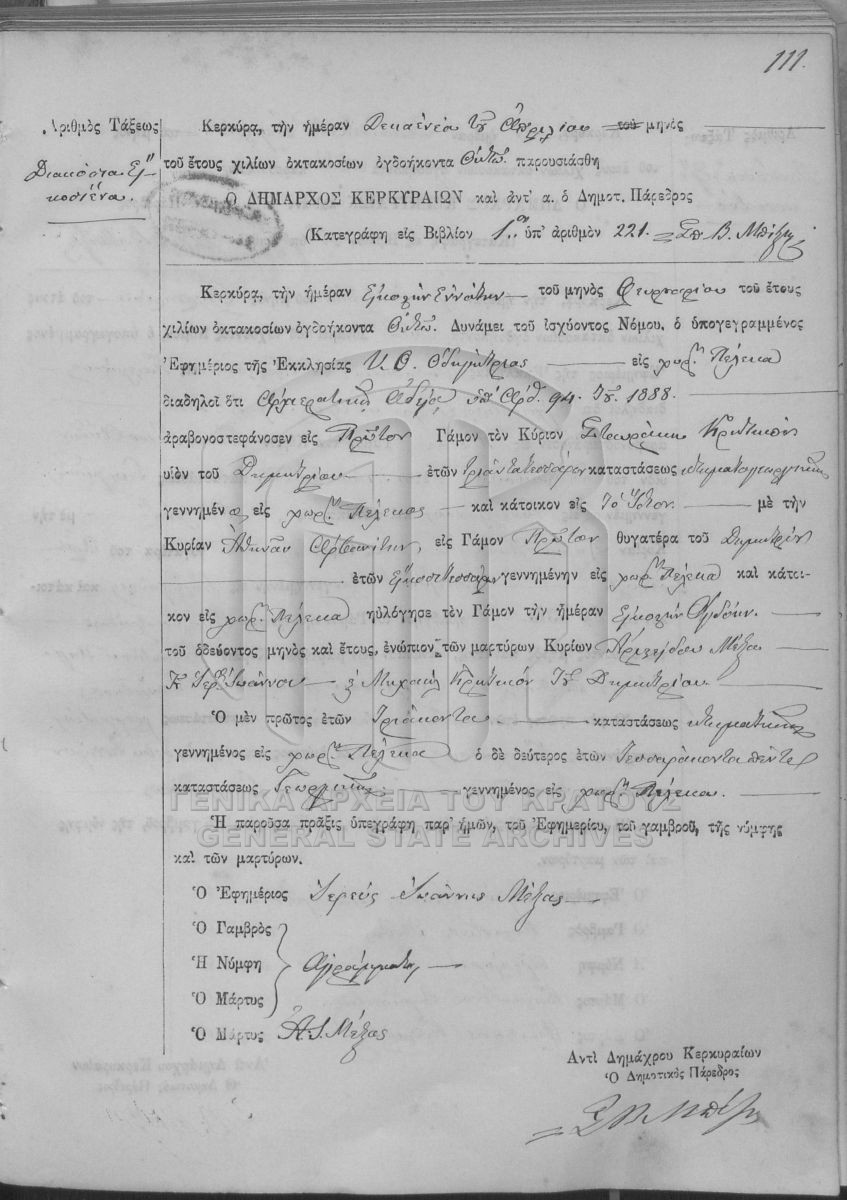 111.
Ἀριθμὸς Τάξεως
Διακόσια Εἴ-
κοσιένα.
Κερκύρᾳ, τὴν ἡμέραν Δεκαενέα τοῦ Ἀπριλίου τοῦ μηνὸς
τοῦ ἔτους χιλίων ὀκτακοσίων ὀγδοήκοντα Ὀκτὼ παρουσιάσθη
Ὁ ΔΗΜΑΡΧΟΣ ΚΕΡΚΥΡΑΙΩΝ καὶ ἀντ' α. ὁ Δημοτ. Πάρεδρος
(Κατεγράφη εἰς Βιβλίον 1ον ὑπ' ἀριθμὸν 221.
Κερκύρᾳ, τὴν ἡμέραν Εἰκοστὴν Ἐννάτην τοῦ μηνὸς Φευρουαρίου τοῦ ἔτους
χιλίων ὀκτακοσίων ὀγδοήκοντα Ὀκτὼ. Δυνάμει τοῦ ἰσχύοντος Νόμου. ὁ ὑπογεγραμμένος
Ἐφημέριος τῆς Ἐκκλησίας Υ. Θ. Ὁδηγήτριας εἰς χωρ. Πέλεκα
διαδηλοῖ ὅτι Ἀρχιερατικῇ Ἀδείᾳ ὑπ' Ἀρθ. 94. τοῦ 1888.
ἀραβονοστεφάνοσεν εἰς Πρῶτον Γάμον τὸν Κύριον Σταυράκη Κρητικὸν
υἱὸν τοῦ Δημητρίου ἐτῶν τριάντατεσσάρων καταστάσεως κτηματογεωργικῆς
γεννημένος εἰς χωρ. Πέλεκας καὶ κάτοικον εἰς Τὸ Ἴδιον μὲ τὴν
Κυρίαν Ἀθηνᾶν εἰς Γάμον Πρῶτον θυγατέρα τοῦ Δημητρίου
ἐτῶν Εἰκοσιτεσσάρων γεννημένην εἰς χωρ. Πέλεκα καὶ κάτοι-
κον εἰς χωρ. Πέλεκα ηὐλόγησε τὸν Γάμον τὴν ἡμέραν Εἰκοστὴν Ὀγδόην.
τοῦ ὁδεύοντος μηνὸς καὶ ἔτους, ἐνώπιον τῶν μαρτύρων Κυρίων Ἀριστείδου Μέξα
Ἱερ. Ἰωάννου Μιχαὴλ Κρητικὸν τοῦ Δημητρίου.
Ὁ μὲν πρῶτος ἐτῶν Τριάκοντα καταστάσεως κτηματικῆς
γεννημένος εἰς χωρ. Πέλεκα ὁ δὲ δεύτερος ἐτῶν Τεσσαράκοντα πέντε
καταστάσεως Γεωργικῆς γεννημένος εἰς χωρ. Πέλεκα.
ΓΕΝΙΚΑ ΑΡΧΕΙΑ ΤΟΥ ΚΡΑΤΟΥΣ
GENERAL STATE ARCHIVES
Ἡ παροῦσα πρᾶξις ὑπεγράφη παρ' ἡμῶν, τοῦ Ἐφημερίου, τοῦ γαμβροῦ, τῆς νύμφης
καὶ τῶν μαρτύρων.
Ὁ Ἐφημέριος Ἱερεὺς Ἰωάννης Μέξας
Ὁ Γαμβρὸς
Ἡ Νύμφη Ἀγράμματοι
Ὁ Μάρτυς
Ὁ Μάρτυς Α. Ι. Μέξας
Ἀντὶ Δημάχρου Κερκυραίων
Ὁ Δημοτικὸς Πάρεδρος